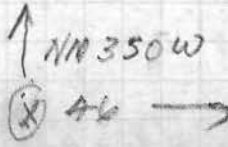 NN 350W
X 46